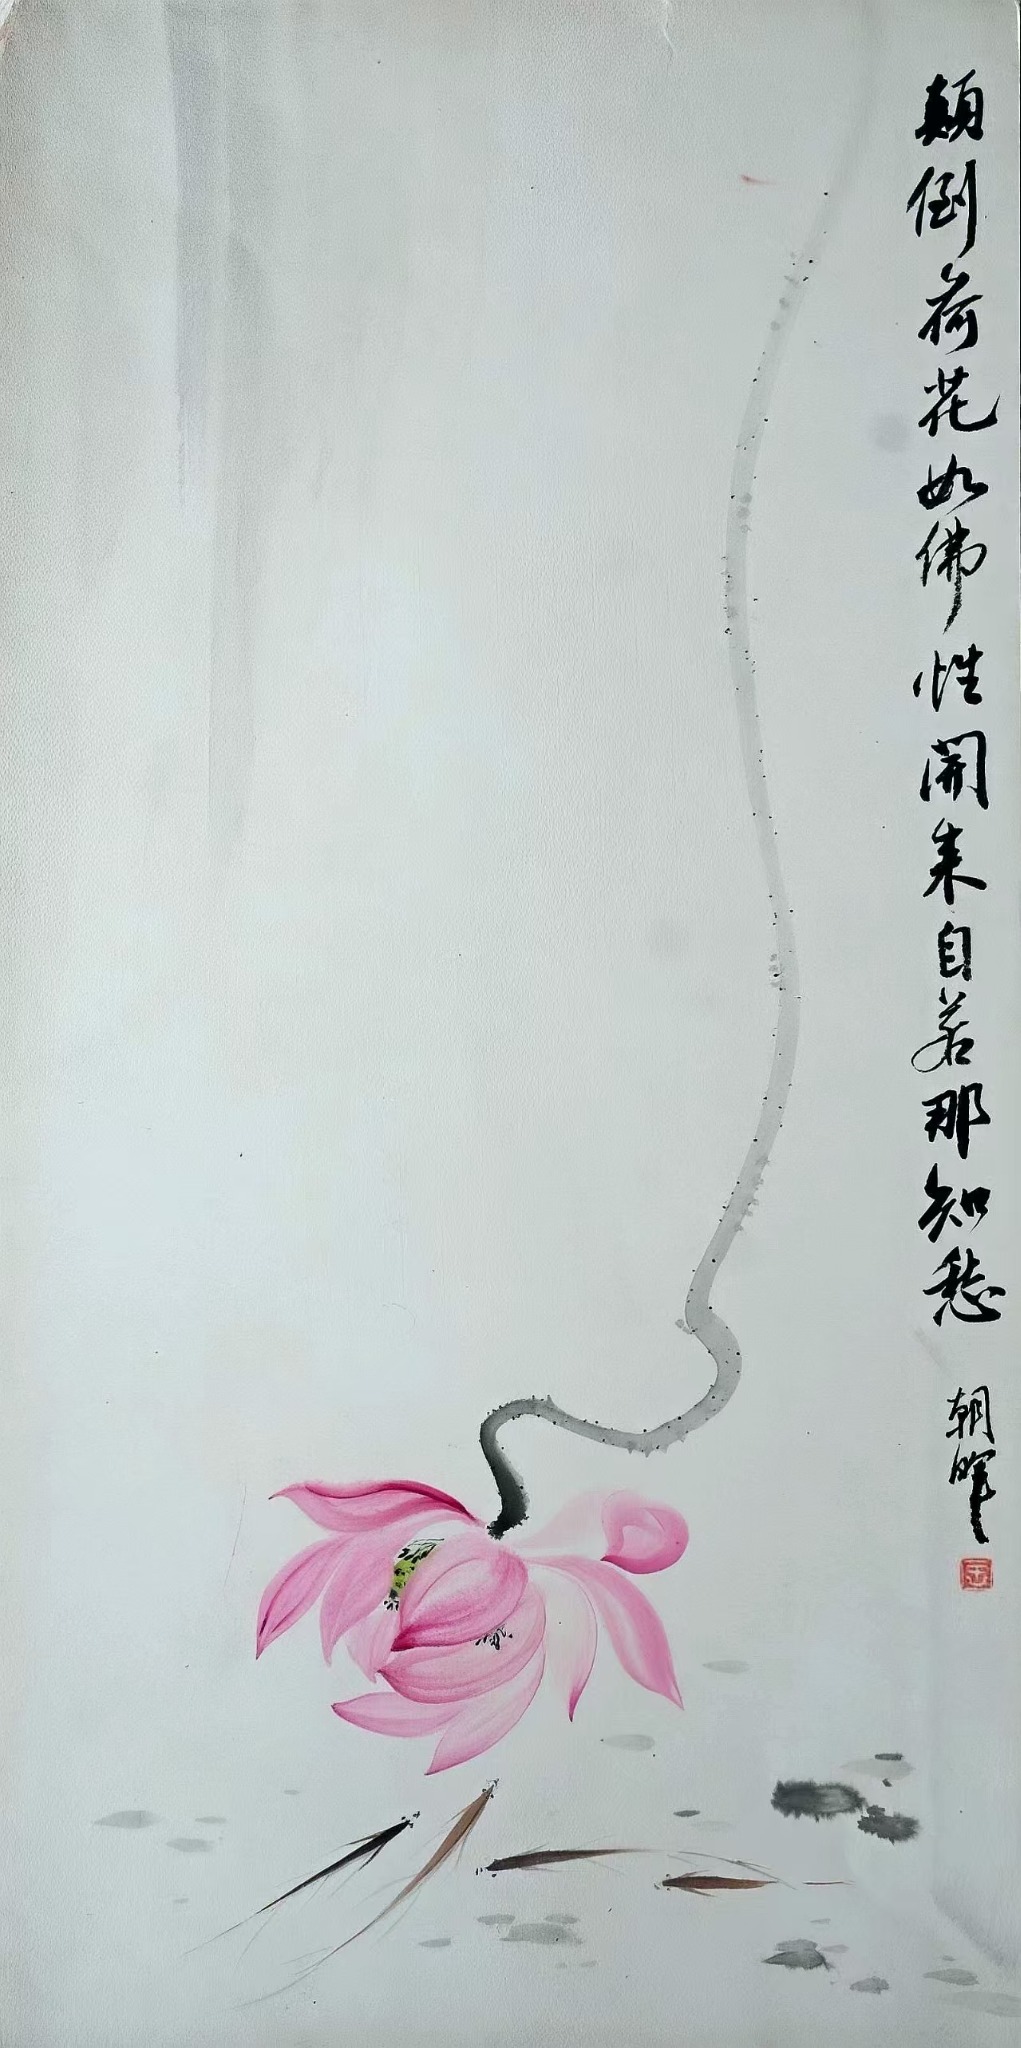 顛倒荷花如佛性開来自若那知愁
朝暉